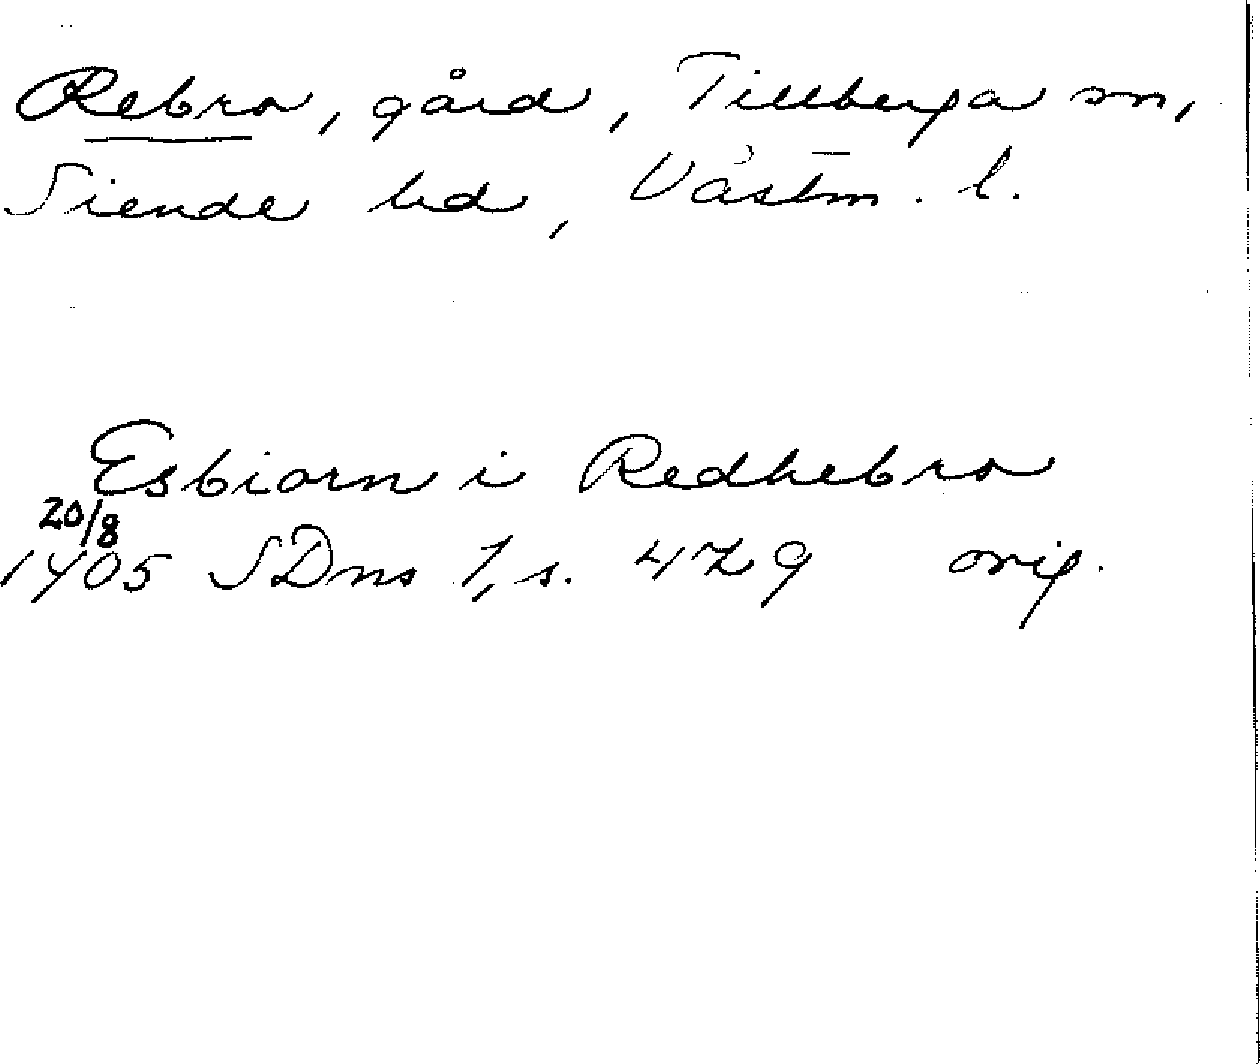 Rebro, gård, Tillberga sn,
Siende hd, Västm. l.
Esbiorn i Redhebro
20/8
1405 SDns 1, s. 429 orig.